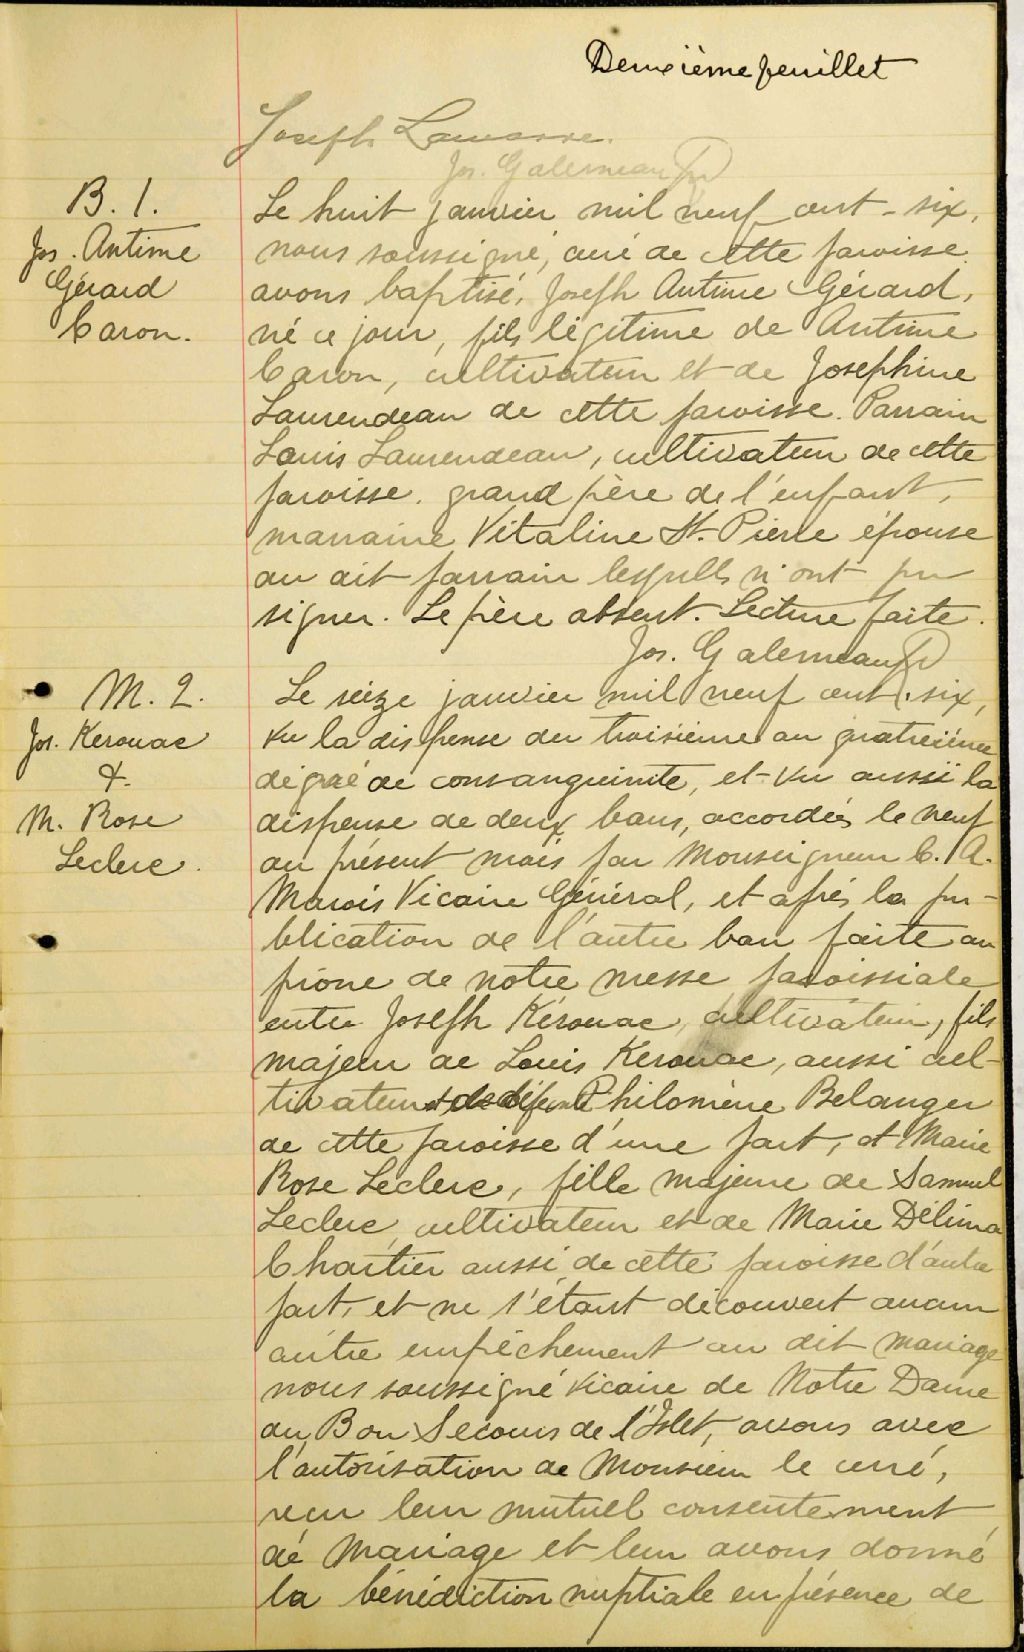 Deuxième feuillet
Joseph Lamarre.
Jos. Galerneau Ptr
B. 1.
Jos. Antime
Gérard
Caron.
Le huit janvier mil neuf cent-six,
nous soussigné, curé de cette paroisse
avons baptisé, Joseph Antime Gérard,
né ce jour, fils légitime de Antime
Caron, cultivateur et de Josephine
Laurendeau de cette paroisse. Parrain
Louis Laurendeau, cultivateur de cette
paroisse. grand père de l'enfant,
marraine Vitaline St. Pierre épouse
du dit parrain lesquels n'ont pu
signer. Le père absent. Lecture faite.
Jos. Galerneau Ptr
M. 2.
Jos. Kerouac
&
M. Rose
Leclerc.
Le seize janvier mil neuf cent six,
vu la dispense du troisième au quatrième
dégré de consanguinité, et vu aussi la
dispense de deux bans, accordés le neuf
du présent mois par Monseigneur C. A.
Marois Vicaire Général, et après la pu-
blication de l'autre ban faite au
prône de notre messe paroissiale
entre Joseph Kérouac, cultivateur, fils
majeur de Louis Kerouac, aussi cul-
tivateur & de défunte Philomène Belanger
de cette paroisse d'une part, et Marie
Rose Leclerc, fille majeure de Samuel
Leclerc, cultivateur et de Marie Délima
Chartier aussi de cette paroisse d'autre
part, et ne s'étant découvert aucun
autre empêchement au dit mariage
nous soussigné vicaire de Notre Dame
du Bon Secours de l'Islet, avons avec
l'autorisation de Monsieur le curé,
reçu leur mutuel consentement
de mariage et leur avons donné
la bénédiction nuptiale en présence de